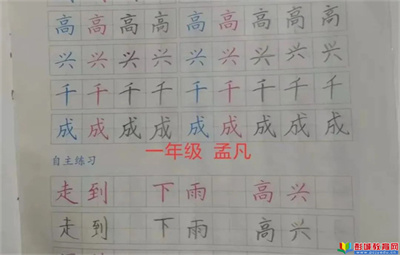 高高高高高高高高高
兴兴兴兴兴兴兴兴兴
千千千千千千千千千
成成成成成成成成成
一年级 孟凡
自主练习
走到 下雨 高兴
走到 下雨 高兴
彭城教育网